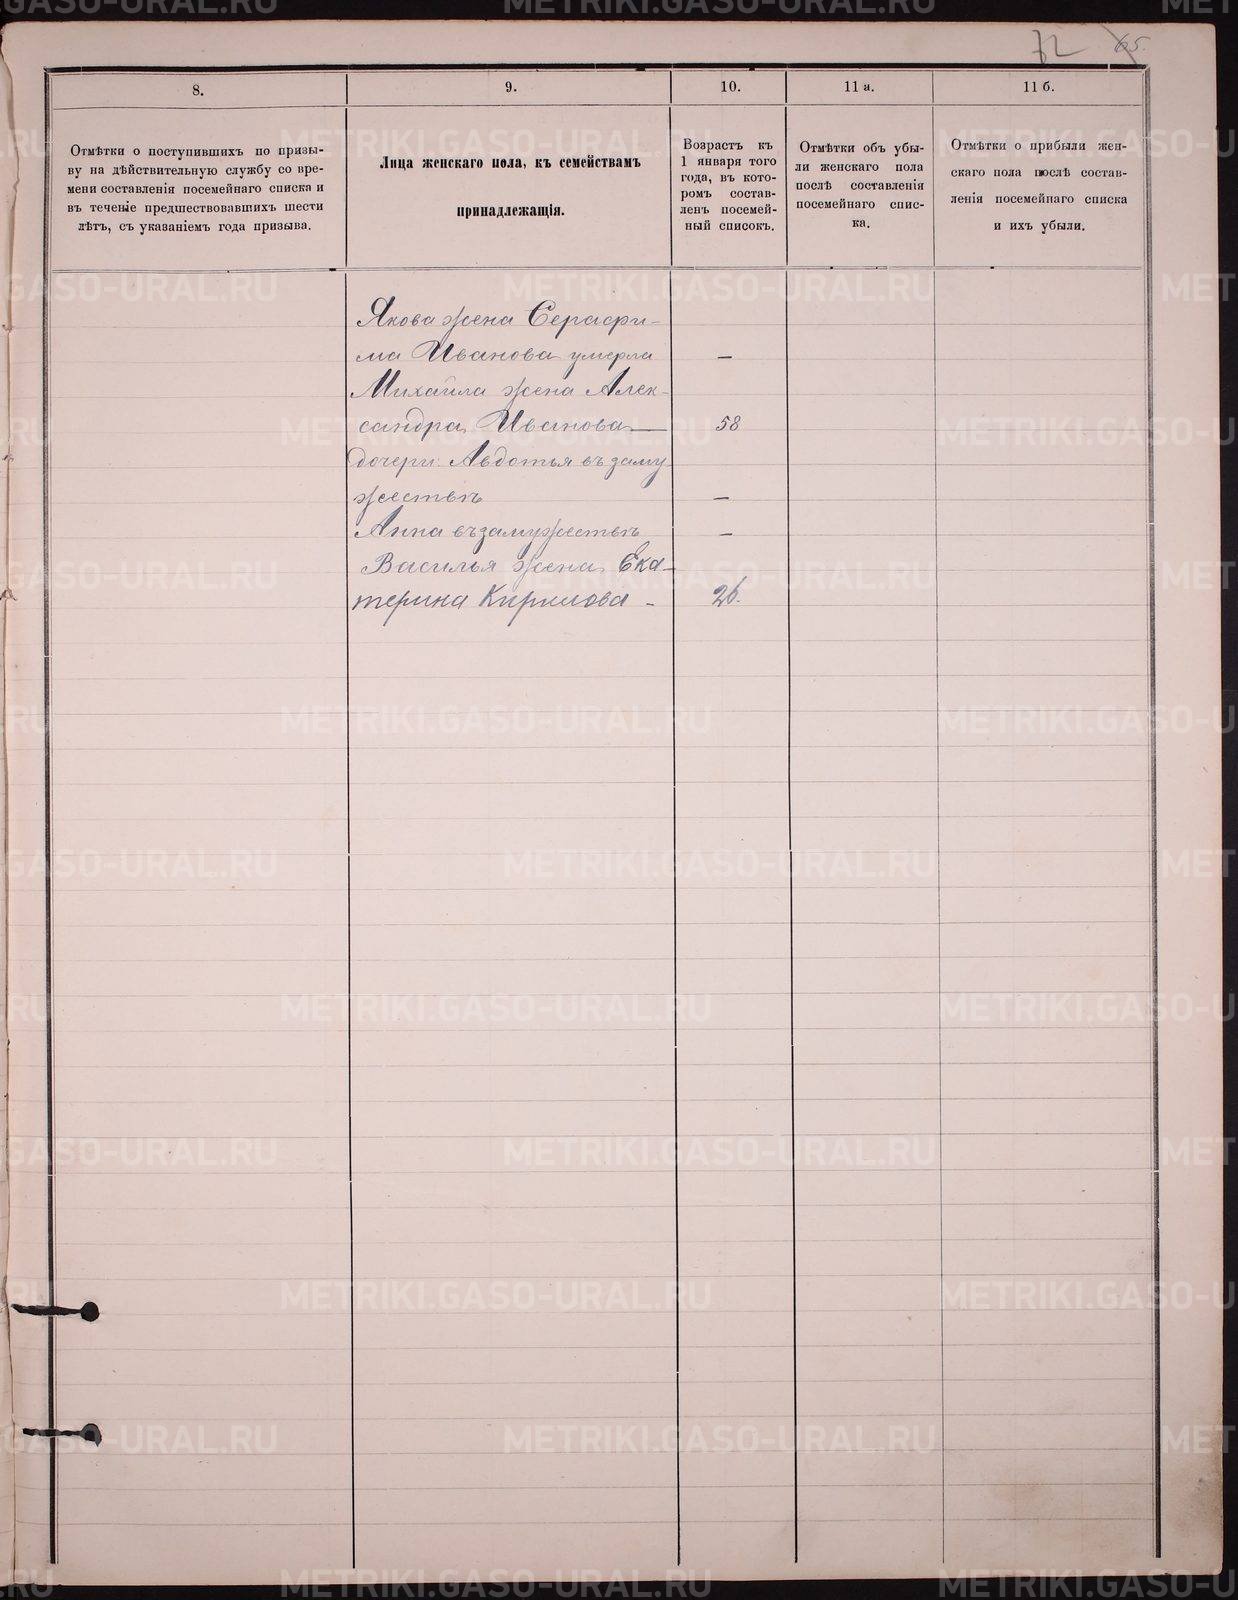 72 65.
8.
9.
10.
11 а.
11 б.
Отмѣтки о поступившихъ по призы-
ву на дѣйствительную службу со вре-
мени составленія посемейнаго списка и
въ теченіе предшествовавшихъ шести
лѣтъ, съ указаніемъ года призыва.
Лица женскаго пола, къ семействамъ
принадлежащія.
Возрастъ къ
1 января того
года, въ кото-
ромъ состав-
ленъ посемей-
ный списокъ.
Отмѣтки объ убы-
ли женскаго пола
послѣ составленія
посемейнаго спис-
ка.
Отмѣтки о прибыли жен-
скаго пола послѣ состав-
ленія посемейнаго списка
и ихъ убыли.
Якова жена Серафи-
ма Иванова умерла —
Михаила жена Алек-
сандра Иванова — 58
дочери: Авдотья въ заму
жествѣ —
Анна въ замужествѣ —
Василья жена Ека-
терина Кирилова - 26.
METRIKI.GASO-URAL.RU